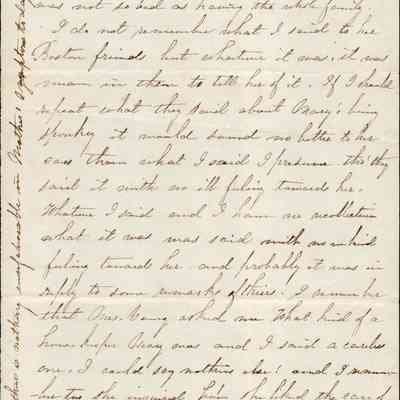 was not so bad as having the whole family.
I do not remember what I said to her
Boston friends but whatever it was, it was
mean in them to tell her of it. If I should
repeat what they said about Mary's being
spunky it would sound no better to her
ears than what I said I presume tho' they
said it with no ill feeling toward her.
Whatever I said and I have no recollection
what it was was said with no unkind
feeling toward her and probably it was in
reply to some remarks of theirs. I remember
that Mrs. asked me what kind of a
housekeeper Mary was and I said a careless
one. I could say nothing else: and I
her too she the care of
is nothing unfavorable in Mother's symptoms to day